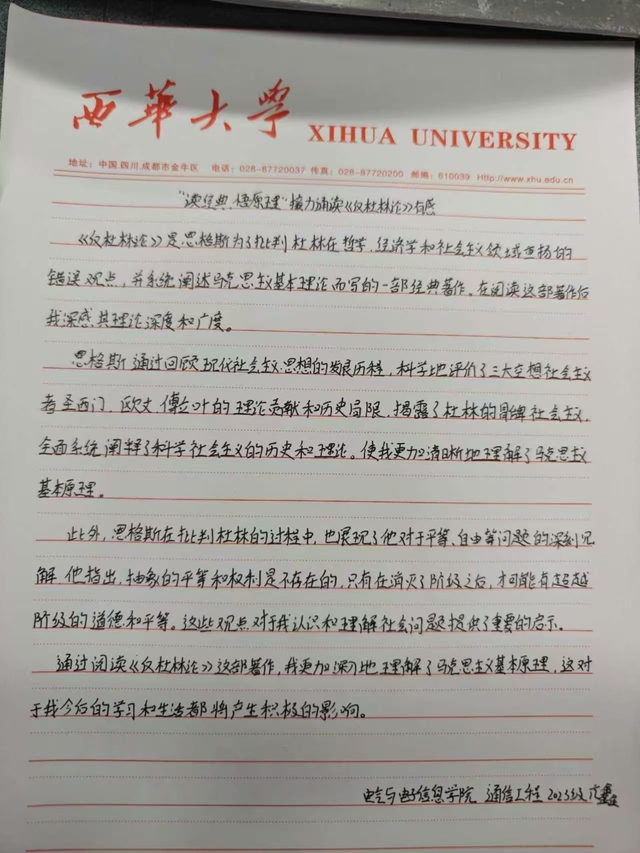 西華大学 XIHUA UNIVERSITY
地址：中国.四川.成都市金牛区 电话：028-87720037 传真：028-87720200 邮编：610039 Http://www.xhu.edu.cn
“读经典，悟原理”接力诵读《反杜林论》有感
《反杜林论》是恩格斯为了批判杜林在哲学、经济学和社会主义领域宣扬的
错误观点，并系统阐述马克思主义基本理论而写的一部经典著作。在阅读这部著作后
我深感其理论深度和广度。
恩格斯通过回顾现代社会主义思想的发展历程，科学地评价了三大空想社会主义
者圣西门、欧文、傅立叶的理论贡献和历史局限，揭露了杜林的冒牌社会主义，
全面系统阐释了科学社会主义的历史和理论。使我更加清晰地理解了马克思主义
基本原理。
此外，恩格斯在批判杜林的过程中，也展现了他对于平等、自由等问题的深刻见
解 他指出，抽象的平等和权利是不存在的，只有在消灭了阶级之后，才可能有超越
阶级的道德和平等。这些观点对于我认识和理解社会问题提供了重要的启示。
通过阅读《反杜林论》这部著作，我更加深刻地理解了马克思主义基本原理，这对
于我今后的学习和生活都将产生积极的影响。
电气与电子信息学院 通信工程 2023级